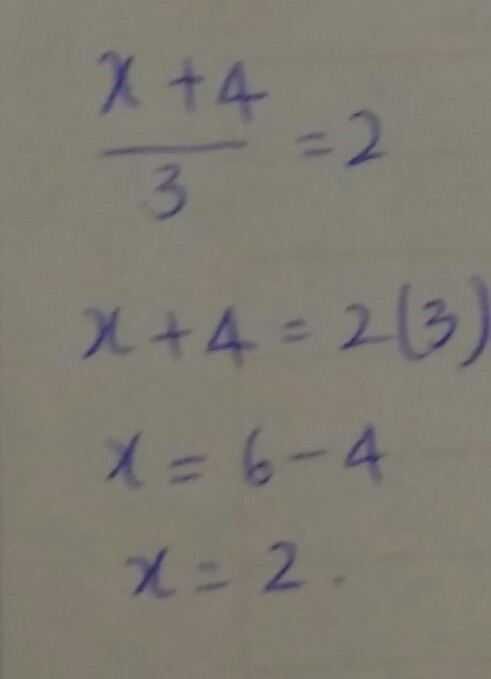 x + 4
3
= 2
x + 4 = 2(3)
x = 6 - 4
x = 2.